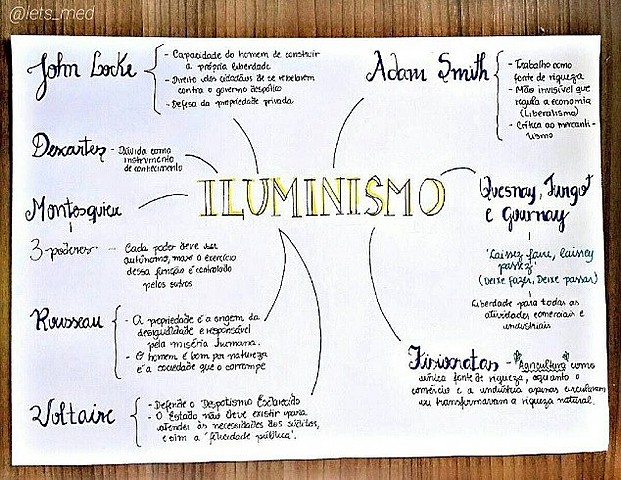 @lets_med
John Locke
- Capacidade do homem de construir
a própria liberdade
- Direito dos cidadãos de se rebelarem
contra o governo despótico
- Defesa da propriedade privada
Adam Smith
- Trabalho como
fonte de riqueza
- Mão invisível que
regula a economia
(Liberalismo)
- Crítica ao mercanti-
lismo
Descartes - Dúvida como
instrumento
de conhecimento
ILUMINISMO
Montesquieu
3 poderes - Cada poder deve ser
autônomo, mas o exercício
dessa função é controlado
pelos outros
Quesnay, Turgot
e Gournay
"Laissez faire, laissez
passez"
(Deixe fazer, Deixe passar)
Liberdade para todas as
atividades comerciais e
industriais
Rousseau
- A propriedade é a origem da
desigualdade e responsável
pela miséria humana.
- O homem é bom por natureza
e a sociedade que o corrompe
Fisiocratas - "Agricultura" como
única fonte de riqueza, enquanto o
comércio e a indústria apenas circulavam
ou transformavam a riqueza natural.
Voltaire
- Defende o Despotismo Esclarecido
- O Estado não deve existir para
atender às necessidades dos súditos,
e sim a "felicidade pública".